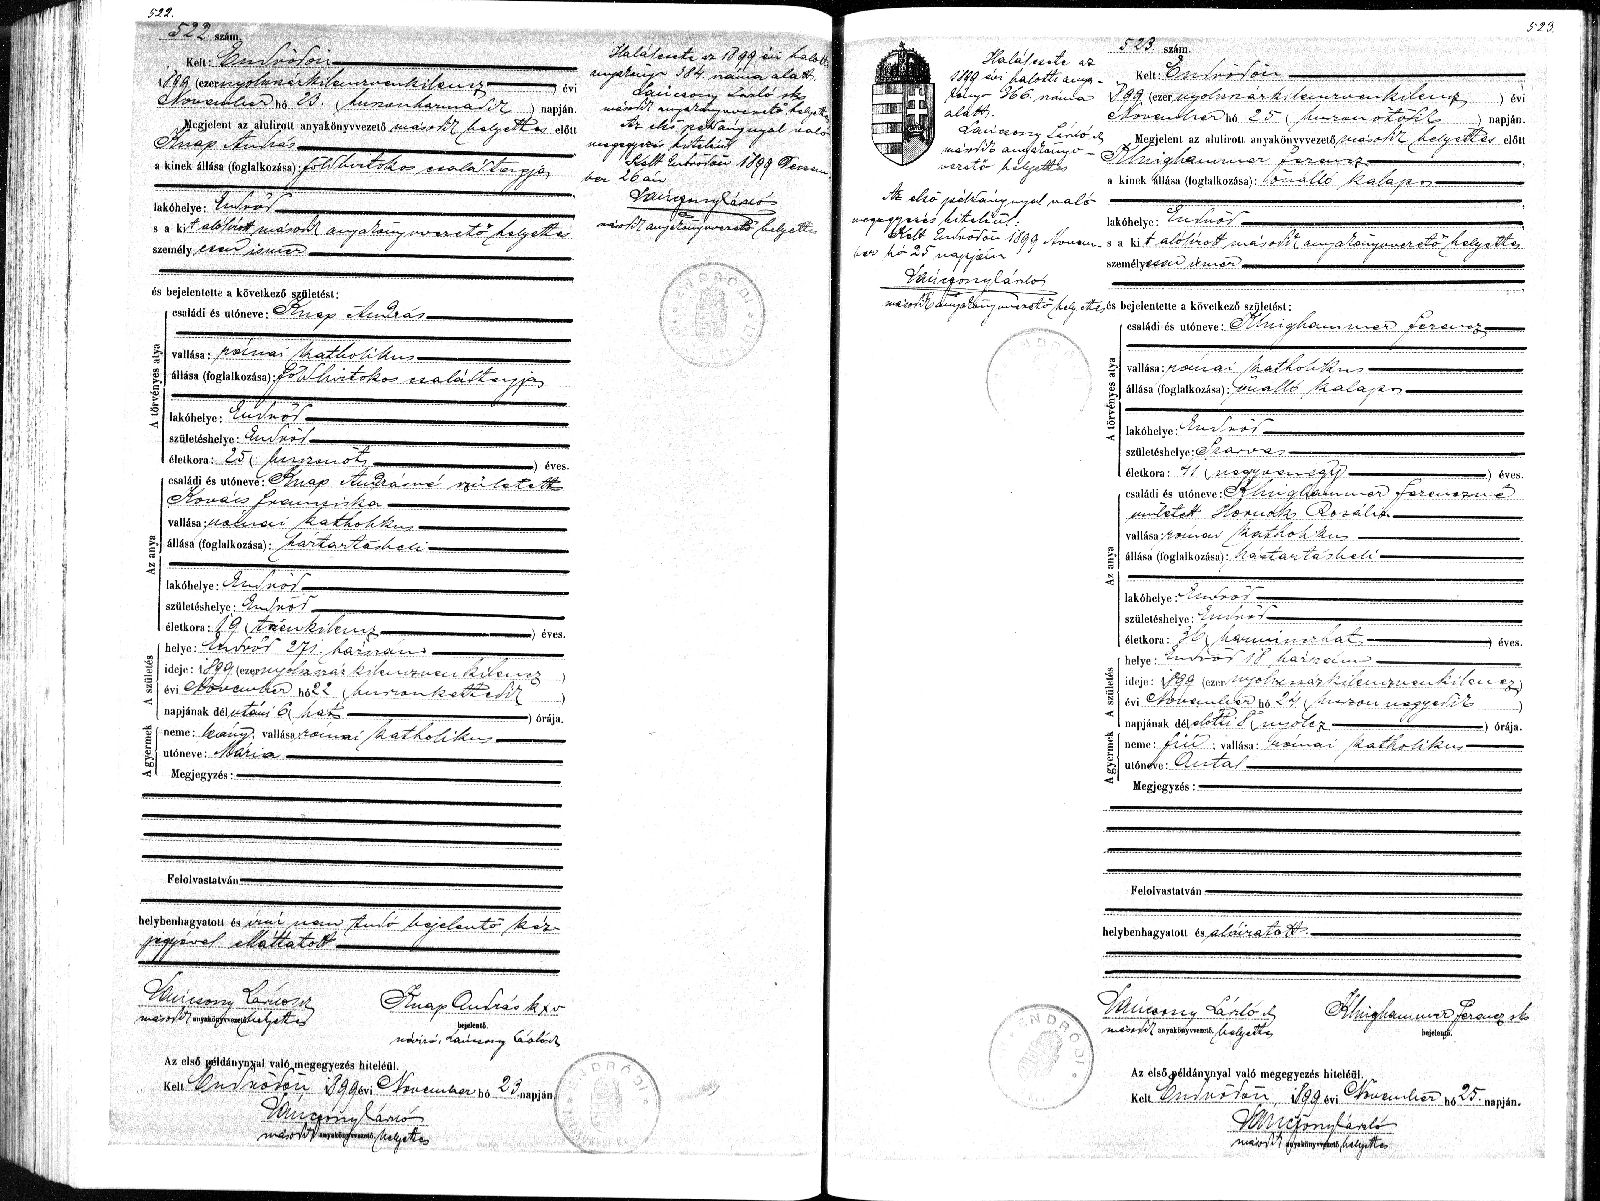 522.
522 szám.
Kelt: Endrődön
1899 (ezernyolczszázkilenczvenkilencz) évi
November hó 23. (huszonharmadik) napján.
Megjelent az alulirott anyakönyvvezető második helyettes előtt
Knap András
a kinek állása (foglalkozása): földbirtokos családtagja
lakóhelye: Endrőd
s a kit alólirott második anyakönyvvezető helyettes
személyesen ismer
és bejelentette a következő születést:
A törvényes atya
családi és utóneve: Knap András
vallása: római katholikus
állása (foglalkozása): földbirtokos családtagja
lakóhelye: Endrőd
születéshelye: Endrőd
életkora: 25 (huszonöt) éves.
Az anya
családi és utóneve: Knap Andrásné született
Kovács Francziska
vallása: római katholikus
állása (foglalkozása): háztartásbeli
lakóhelye: Endrőd
születéshelye: Endrőd
életkora: 19 (tizenkilencz) éves.
A születés
helye: Endrőd 271. házszám
ideje: 1899 (ezernyolczszázkilenczvenkilencz)
évi November hó 22 (huszonkettedik)
napjának délutáni 6 (hat) órája.
A gyermek
neme: leány; vallása: római katholikus
utóneve: Mária
Megjegyzés:
Felolvastatván
helybenhagyatott és írni nem tudó bejelentő kéz-
jegyével elláttatott
második anyakönyvvezető helyettes
Knap András k x v
bejelentő.
Az első példánynyal való megegyezés hiteléül.
Kelt Endrődön 1899 évi November hó 23 napján.
második anyakönyvvezető helyettes
Halálesete az 1899 évi halotti
anyakönyv 384. száma alatt.
második anyakönyvvezető helyettes
Az első példánynyal való
megegyezés hiteléül
Kelt Endrődön 1899 Decem-
ber 26 án
második anyakönyvvezető helyettes
ENDRŐDI
ENDRŐDI
523.
523. szám.
Kelt: Endrődön
1899 (ezernyolczszázkilenczvenkilencz) évi
November hó 25 (huszonötödik) napján.
Megjelent az alulirott anyakönyvvezető második helyettes előtt
Klinghammer Ferencz
a kinek állása (foglalkozása): önálló kalapos
lakóhelye: Endrőd
s a kit alólirott második anyakönyvvezető helyettes
személyesen ismer
és bejelentette a következő születést:
A törvényes atya
családi és utóneve: Klinghammer Ferencz
vallása: római katholikus
állása (foglalkozása): önálló kalapos
lakóhelye: Endrőd
születéshelye: Szarvas
életkora: 41 (negyvenegy) éves.
Az anya
családi és utóneve: Klinghammer Ferenczné
született Hornok Rozália
vallása: római katholikus
állása (foglalkozása): háztartásbeli
lakóhelye: Endrőd
születéshelye: Endrőd
életkora: 36 (harminczhat) éves.
A születés
helye: Endrőd 18 házszám
ideje: 1899 (ezernyolczszázkilenczvenkilencz)
évi November hó 24 (huszonnegyedik)
napjának délelőtti 8 (nyolcz) órája.
A gyermek
neme: fiú; vallása: római katholikus
utóneve: Antal
Megjegyzés:
Felolvastatván
helybenhagyatott és aláiratott.
második anyakönyvvezető helyettes
Klinghammer Ferencz sk
bejelentő.
Az első példánynyal való megegyezés hiteléül.
Kelt Endrődön, 1899 évi November hó 25. napján.
második anyakönyvvezető helyettes
Halálesete az
1899 évi halotti anya-
könyv 366. száma
alatt.
második anyakönyv-
vezető helyettes
Az első példánynyal való
megegyezés hiteléül.
Kelt Endrődön 1899 Novem-
ber hó 25 napján
második anyakönyvvezető helyettes
ENDRŐDI
ENDRŐDI